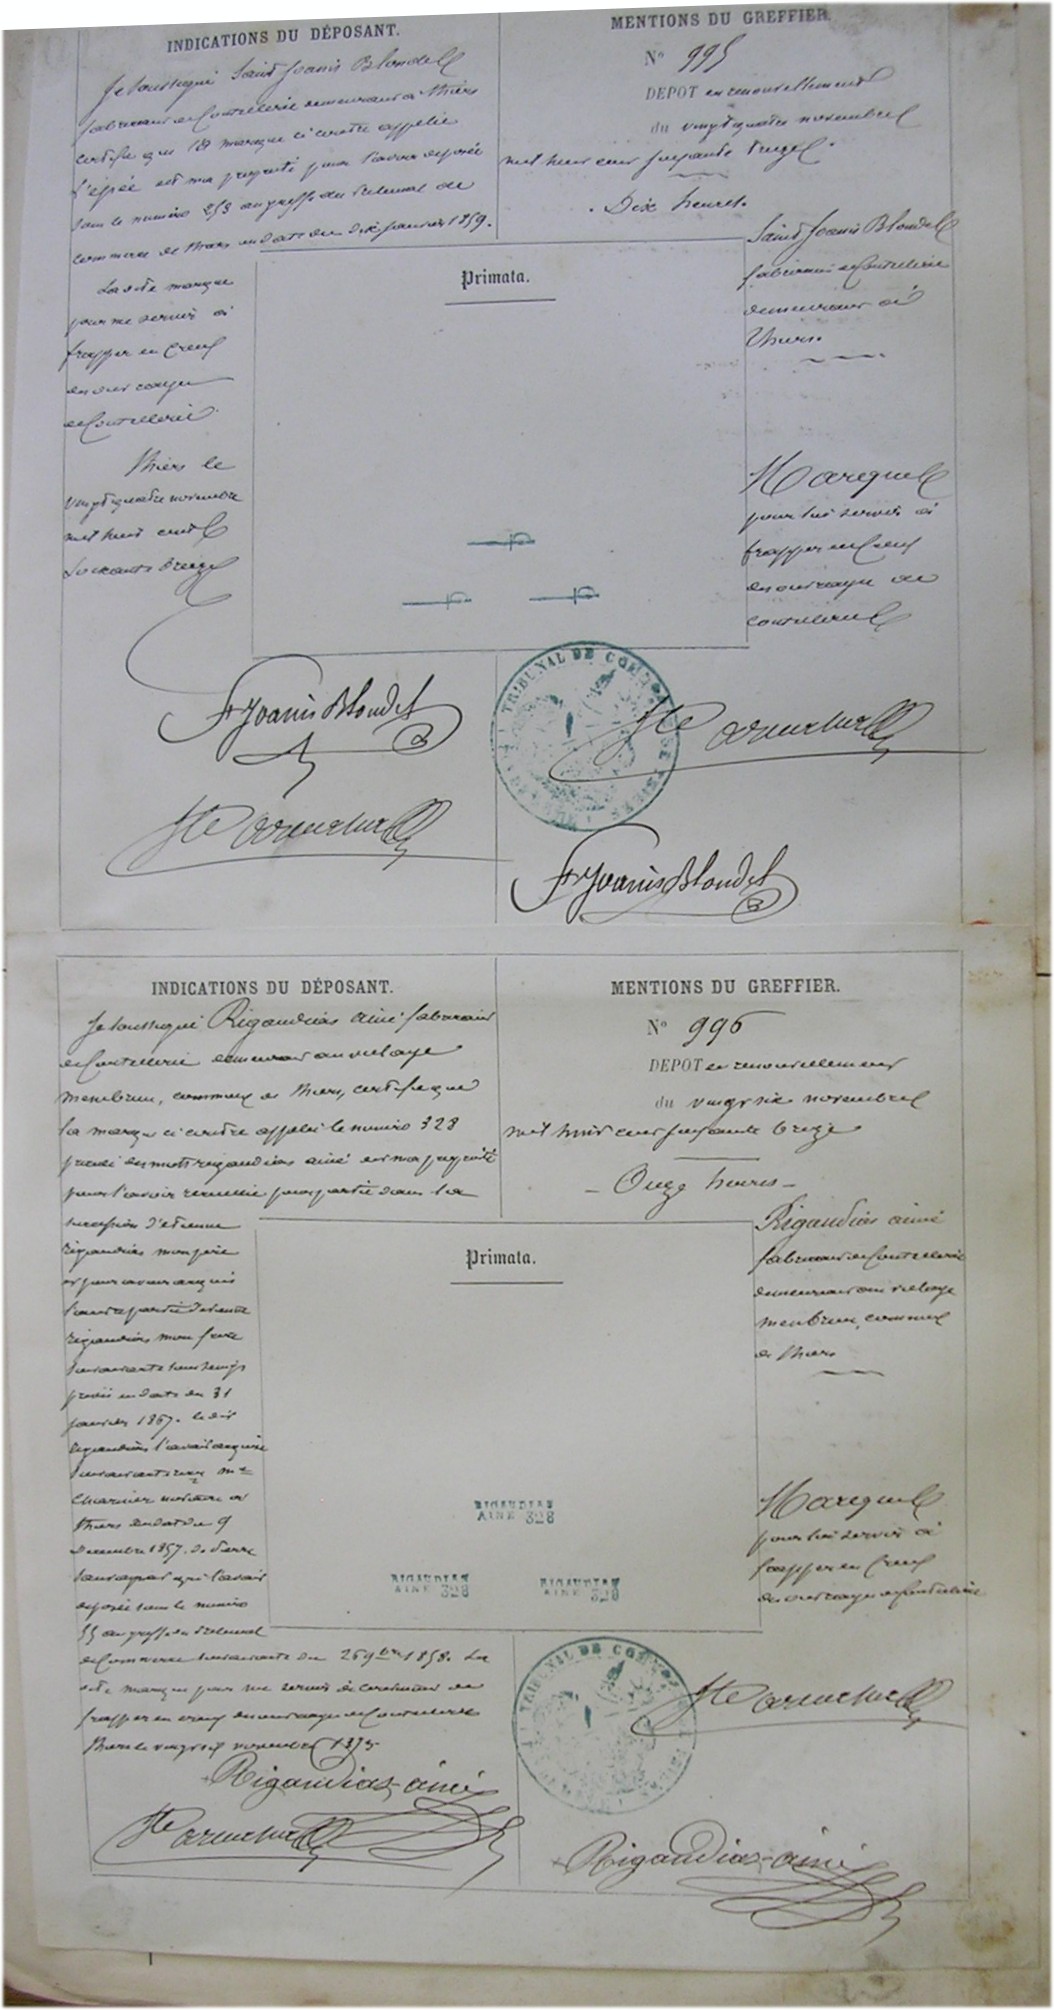 INDICATIONS DU DÉPOSANT.
Je soussigné Saint Joanis Blondel
fabricant de Coutellerie demeurant à Thiers
certifie que la marque ci contre appelée
l'épée est ma propriété pour l'avoir déposée
sous le numéro 253 au greffe du tribunal de
commerce de Thiers en date du dix janvier 1859.
La dite marque
pour me servir à
frapper en creux
des ouvrages
de Coutellerie.
Thiers le
vingt quatre novembre
mil huit cent
soixante treize
St Joanis Blondel
MENTIONS DU GREFFIER.
No 995
DEPOT en renouvellement
du vingt quatre novembre
mil huit cent soixante treize.
Dix heures.
Primata.
Saint Joanis Blondel
fabricant de Coutellerie
demeurant à
Thiers.
Marque
pour lui servir à
frapper en Creux
des ouvrages de
coutellerie
TRIBUNAL DE COMMERCE
St Joanis Blondel
INDICATIONS DU DÉPOSANT.
Je soussigné Rigaudias ainé fabricant
de Coutellerie demeurant au village
Membrun, commune de Thiers, certifie que
la marque ci contre appelée le numéro 328
précédé des mots rigaudias ainé est ma propriété
pour l'avoir recueillie pour partie dans la
succession d'etienne
rigaudias mon père
et pour avoir acquis
l'autre partie
rigaudias mon frère
suivant sous seings
privés en date du 31
janvier 1867. le dit
rigaudias l'avait acquise
suivant acte reçu Me
Charrier notaire à
Thiers en date du 9
Décembre 1857. de
qui l'avait
déposée sous le numéro
55 au greffe du tribunal
de Commerce suivant du 26 9bre 1858. La
dite marque pour me servir de
frapper en creux des ouvrages de Coutellerie
Thiers le vingt six novembre 1873
Rigaudias ainé
MENTIONS DU GREFFIER.
No 996
DEPOT en renouvellement
du vingt six novembre
mil huit cent soixante treize
Onze heures
Primata.
Rigaudias ainé
fabricant de Coutellerie
demeurant au village
Membrun, commune
de Thiers
RIGAUDIAS
AINE 328
RIGAUDIAS
AINE 328
RIGAUDIAS
AINE 328
Marque
pour lui servir à
frapper en Creux
des ouvrages de Coutellerie
TRIBUNAL DE COMMERCE
Rigaudias ainé